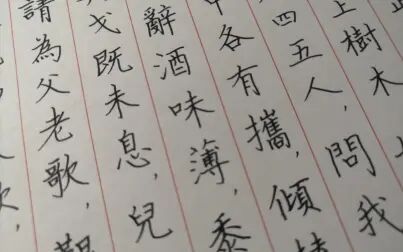 上樹木,
四五人,問我
中各有攜,傾
辭酒味薄,黍
戈既未息,兒
請為父老歌,